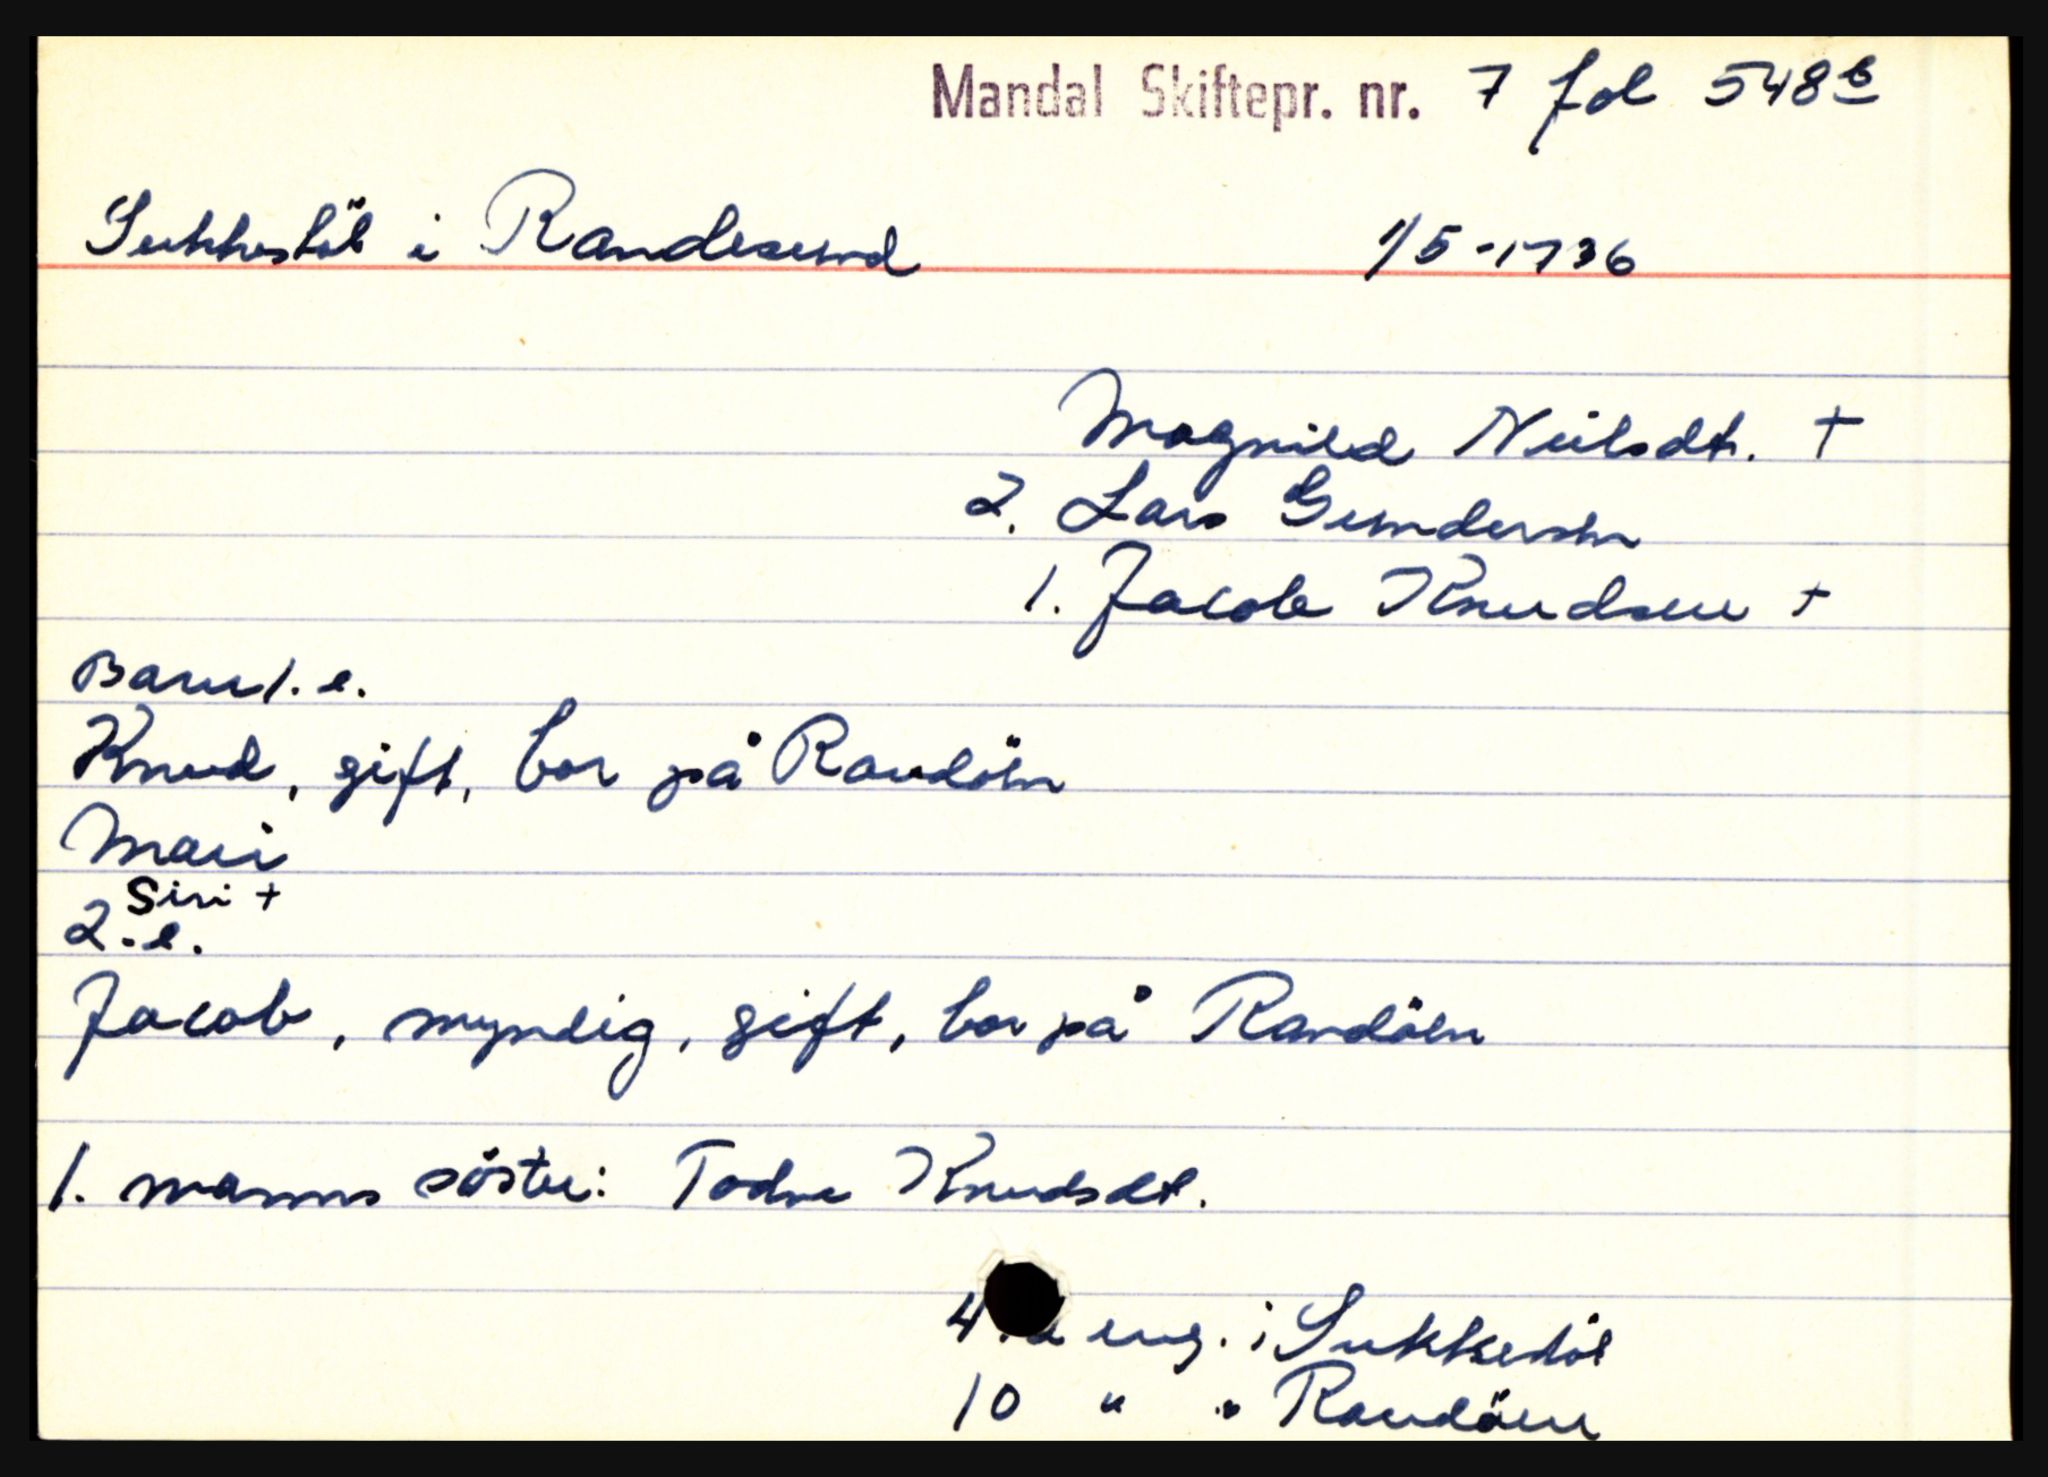 Mandal Skiftepr. nr. 7 fol 548b
Sukkestöl i Randesund 1/5-1736
Magnild Neilsdt. +
2. Lars Gundersen
1. Jacob Knudsen +
Barn 1. e.
Knud, gift, bor på Randöen
Mari
Siri +
2. e.
Jacob, myndig, gift, bor på Randöen
1. manns söster: Todne Knudsdt.
4 eng. i Sukkestöl
10 " " Randöen